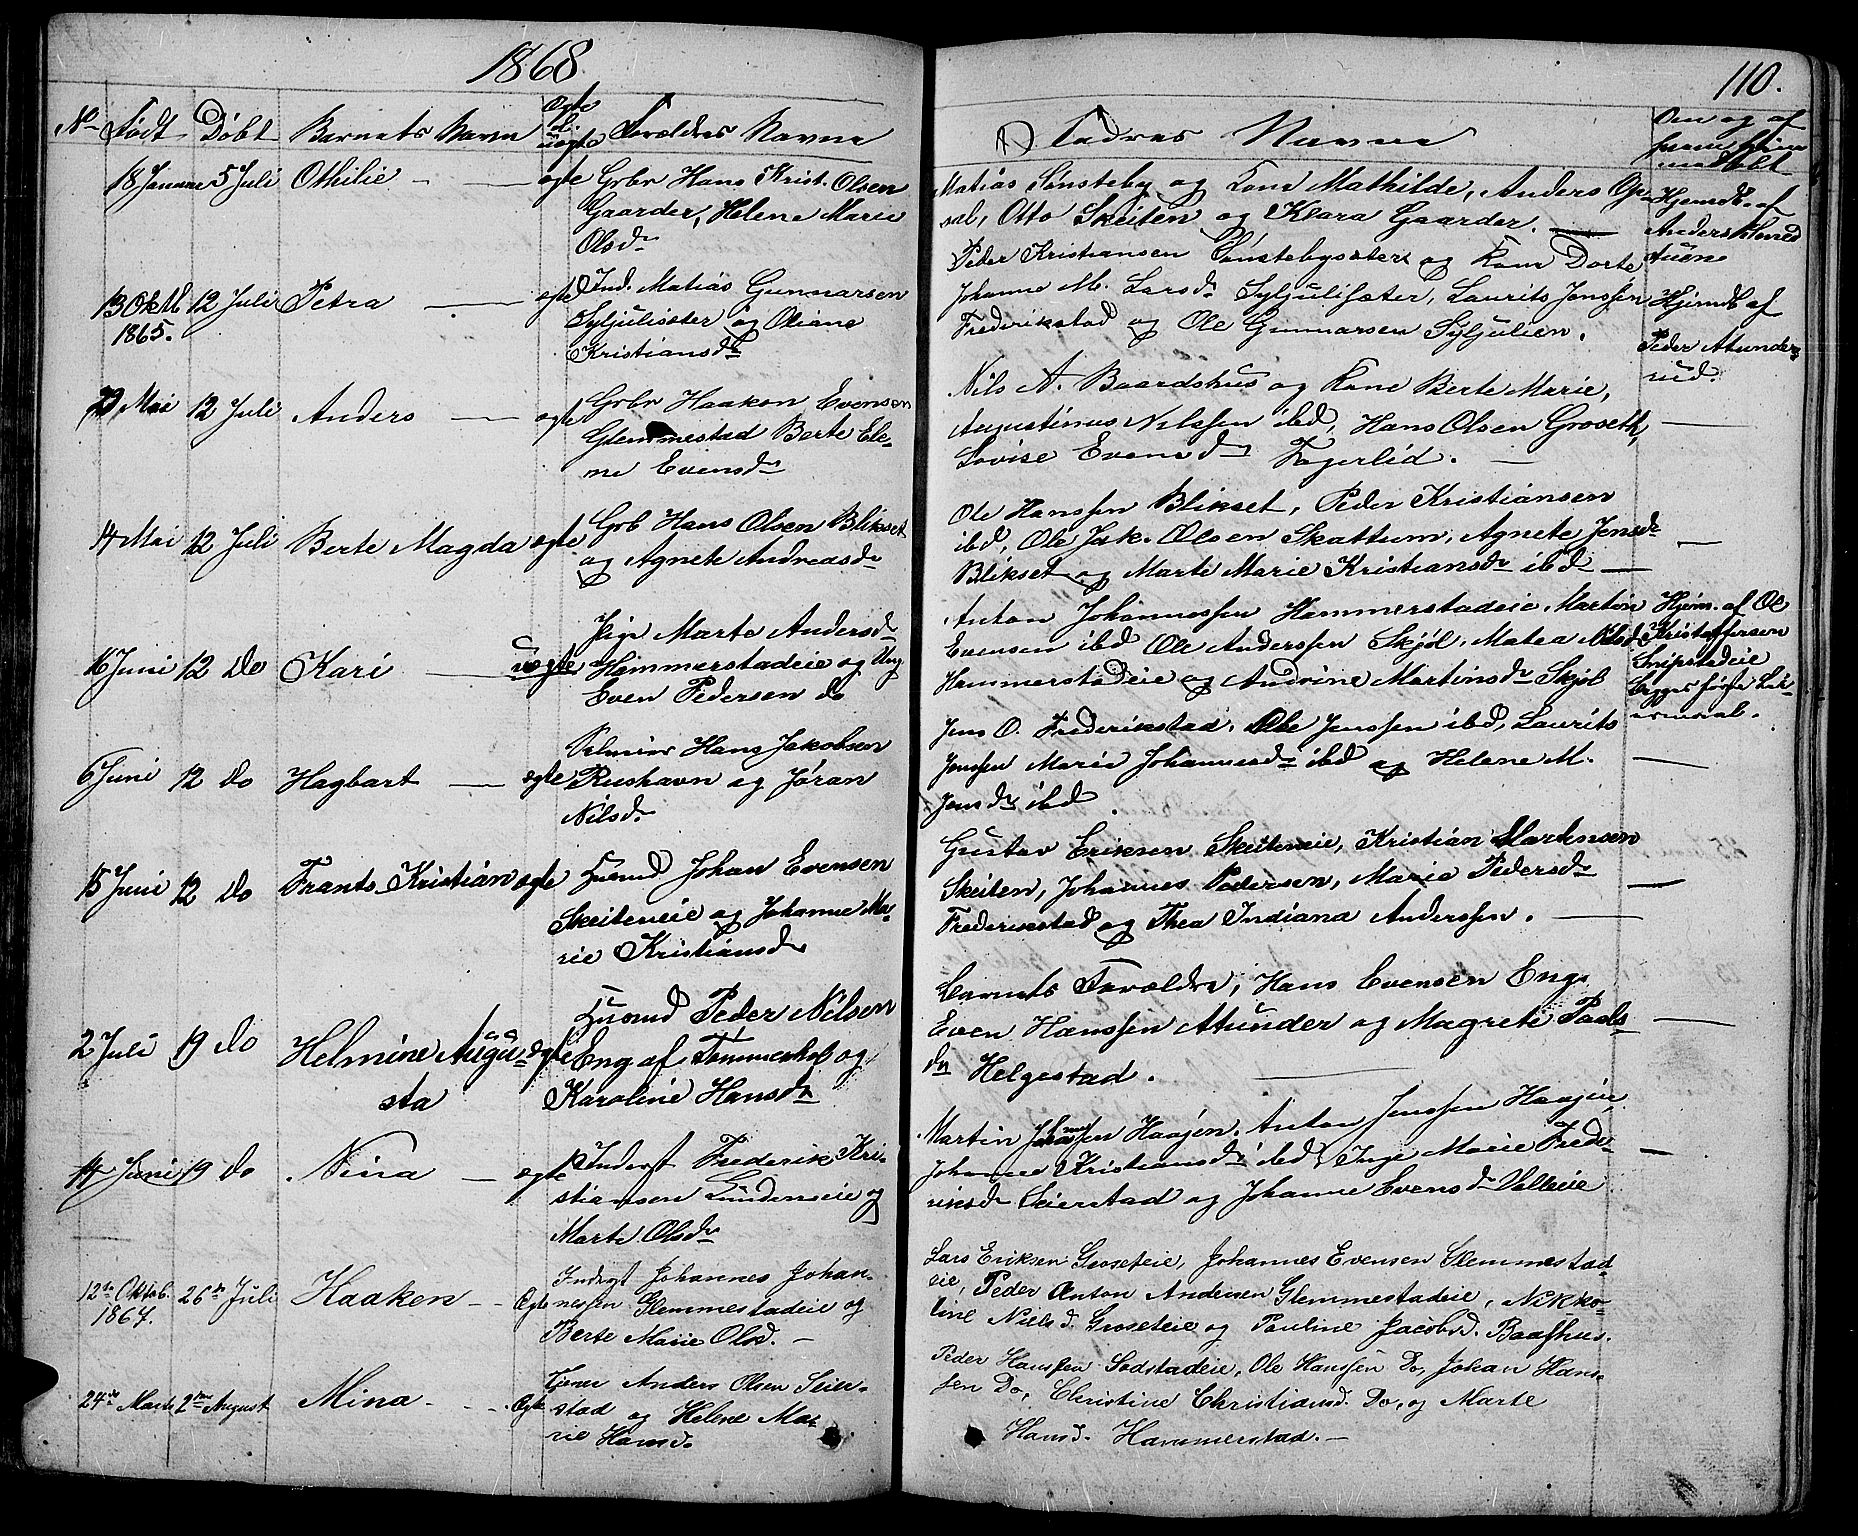 1868.
110.
No Født Døbt Barnets Navn Ægte el. uægte Forældres Navne
Fadres Navne
Om og af hvem hjemmedøbt
18 Januar 5 Juli Othilie - ægte Grbr Hans Krist. Olsen
Gaarder, Helene Marie
Olsd.
Matias Sønsteby og Kone Mathilde, Anders Op-
sal, Otto Skeiten og Klara Gaarder.
Hjemdb. af
Anders
13 Oktb 12 Juli Petra ægte Ind. Matias Gunnarsen
1865.
Syljulisæter og Oliane
Kristiansd.
Peder Kristiansen Sønstebysæter og Kone Dorte
Johanne M. Larsd. Syljulisæter, Laurits Jenssen
Frederikstad og Ole Gunnarsen Syljulien.
Hjemdb af
Peder Atunde-
rud.
Mai 12 Juli Anders ægte Grbr Haakon Evensen
Glemmestad Berte Ele-
ne Evensd.
Nils A. Baardshus og Kone Berte Marie,
Augustinus Nilssen ibd, Hans Olsen Groseth,
Lovise Evensd. Fagerlid.
14 Mai 12 Juli Berte Magda ægte Grb Hans Olsen Blikset
og Agnete Andreasd.
Ole Hanssen Blikset, Peder Kristiansen
ibd, Ole Jak. Olsen Skattum, Agnete Jensd.
Blikset og Marte Marie Kristiansd. ibd
16 Juni 12 Do Kari uægte Pige Marte Andersd.
Hammerstadeie og Ung
Even Pedersen do
Anton Johannessen Hammerstadeie, Martin
Evensen ibd Ole Anderssen Skjøl, Matea Nilsd.
Hammerstadeie og Andrine Martinsd. Skjøl
Hjem. af Ole
Kristoffersen
Snipstadeie
Begges første Lei-
ermaal.
6 Juni 12 Do Hagbart ægte Selveier Hans Jakobsen
Rushavn og Jøran
Nilsd.
Jens O. Frederikstad, Ole Jenssen ibd, Laurits
Jenssen Marie Johannesd. ibd og Helene M.
Jensd. ibd.
15 Juni 12 Do Frants Kristian ægte Husmd Johan Evensen
Skeiteneie og Johanne Ma-
rie Kristiansd.
Gustav Eriksen Skeiteneie, Kristian Martinsen
Skeiten, Johannes Pedersen, Marie Pedersd.
Frederikstad og Thea Indiana Anderssen.
2 Juli 19 Do Helmine Augu-
sta
ægte Husmd Peder Nilsen
Eng af Tømmerhol og
Karoline Hansd.
Barnets Forældre, Hans Evensen Eng,
Even Hanssen Atunder og Magrete Pouls-
dr Helgestad.
14 Juni 19 Do Nina ægte Inderst Frederik Kri-
stiansen Lundeneie og
Marte Olsd.
Martin Haajen, Anton Jenssen Haajen,
Johanne Kristiansd. ibd, Inge Marie Fred-
riksd. Seierstad og Johanne Evensd. Valleie
12te Oktob. 26de Juli Haaken - Ægte Inderst Johannes Johan-
1867.
nessen Glemmestadeie og
Berte Marie Olsd. -
Lars Eriksen Groseteie, Johannes Evensen Glemmestad-
eie, Peder Anton Andersen Glemmestadeie, Nikko-
line Nielsd. Groseteie og Pauline Jacobsd. Baashus.
24de Marts 2den August Mina - Ægte Tjener Anders Olsen Seier-
stad og Helene Ma-
rie Hansd.
Peder Hanssen Sodstadeie, Ole Hanssen Do, Johan Hans-
sen Do, Christine Christiansd. Do, og Marte
Hansd. Hammerstad. -